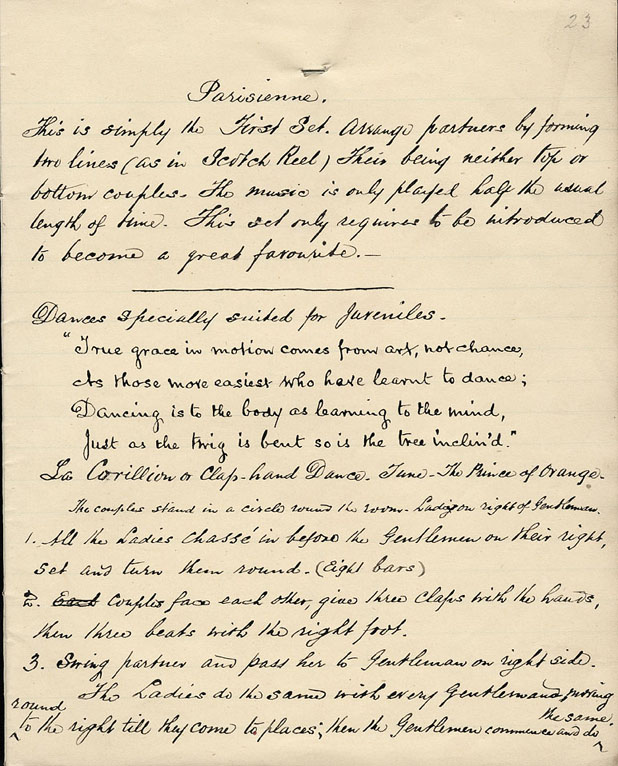 23
Parisienne.
This is simply the First Set. Arrange partners by forming
two lines (as in Scotch Reel) Their being neither top or
bottom couples. The music is only played half the usual
length of time. This set only requires to be introduced
to become a great favourite.—
Dances specially suited for Juveniles.
"True grace in motion comes from art, not chance,
As those move easiest who have learnt to dance;
Dancing is to the body as learning to the mind,
Just as the twig is bent so is the tree inclin'd."
La Corillion or Clap-hand Dance. Tune-The Prince of Orange.
The couples stand in a circle round the room- Ladies on right of Gentlemen.
1. All the Ladies chassé in before the Gentlemen on their right,
set and turn them round. (Eight bars)
2. Each Couples face each other, give three Claps with the hands,
then three beats with the right foot.
3. Swing partner and pass her to Gentleman on right side.
The Ladies do the same with every Gentleman passing
round
to the right till they come to places; then the Gentlemen commence and do
the same.